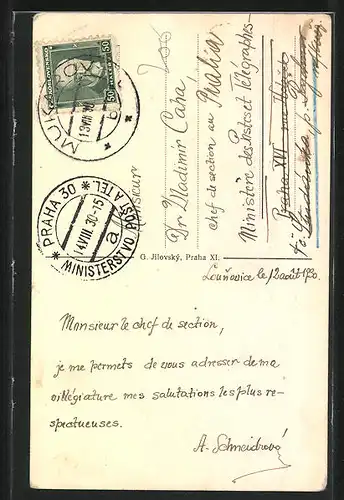 ČESKOSLOVENSKO
50
50
13 VIII 30
PRAHA 30
14.VIII.30-15
a
MINISTERSTVO POŠT A TEL.
Monsieur
Dr Vladimir Caha,
chef de section au
Ministère des Postes et Télégraphes
Praha XIII
G. Jilovský, Praha XI.
Louňovice le 12 août 1930.
Monsieur le chef de section,
je me permets de vous adresser de ma
villégiature mes salutations les plus re-
spectueuses.
A. Schneidrová